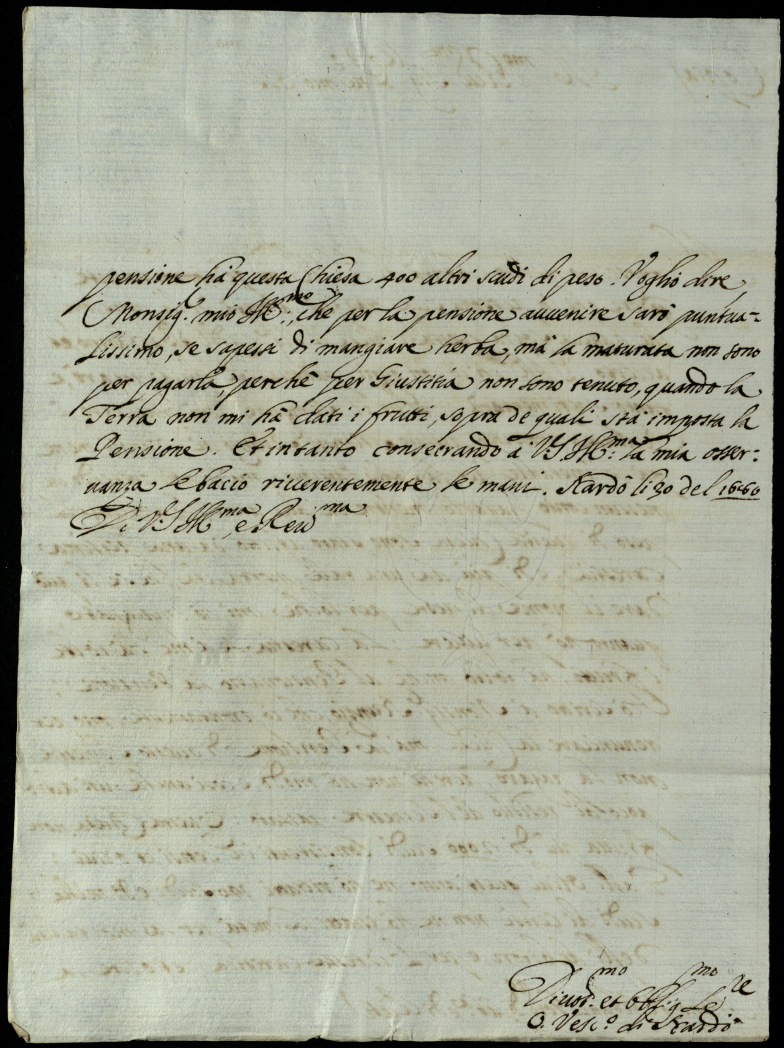 pensione hà questa Chiesa 400 altri scudi di peso. Voglio dire
Monsig.r mio Ill:mo, che per la pensione auuenire sarò puntua=
lissimo, se sapessi di mangiare herba, mà la maturata non sono
per pagarla, perche per Giustitia non sono tenuto, quando la
Terra non mi hà dati i frutti, sopra de quali stà imposta la
Pensione. Et intanto consecrando à V.S. Ill:ma la mia osser:
uanza le bacio riuerentemente le mani. Nardò li 20 del 1660
Di V.S. Ill:ma e Reu:ma
Diuot:mo et obblig:mo Se:re
O. Vesc.o di Nardò